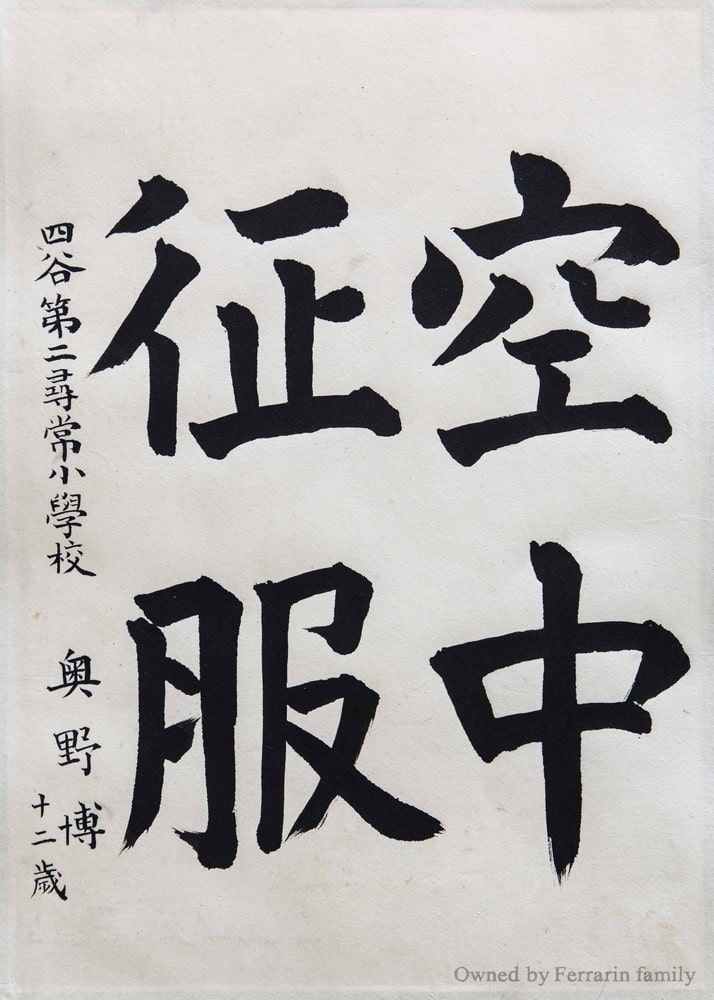 空中
征服
四谷第二尋常小學校
奥野博
十二歲
Owned by Ferrarin family